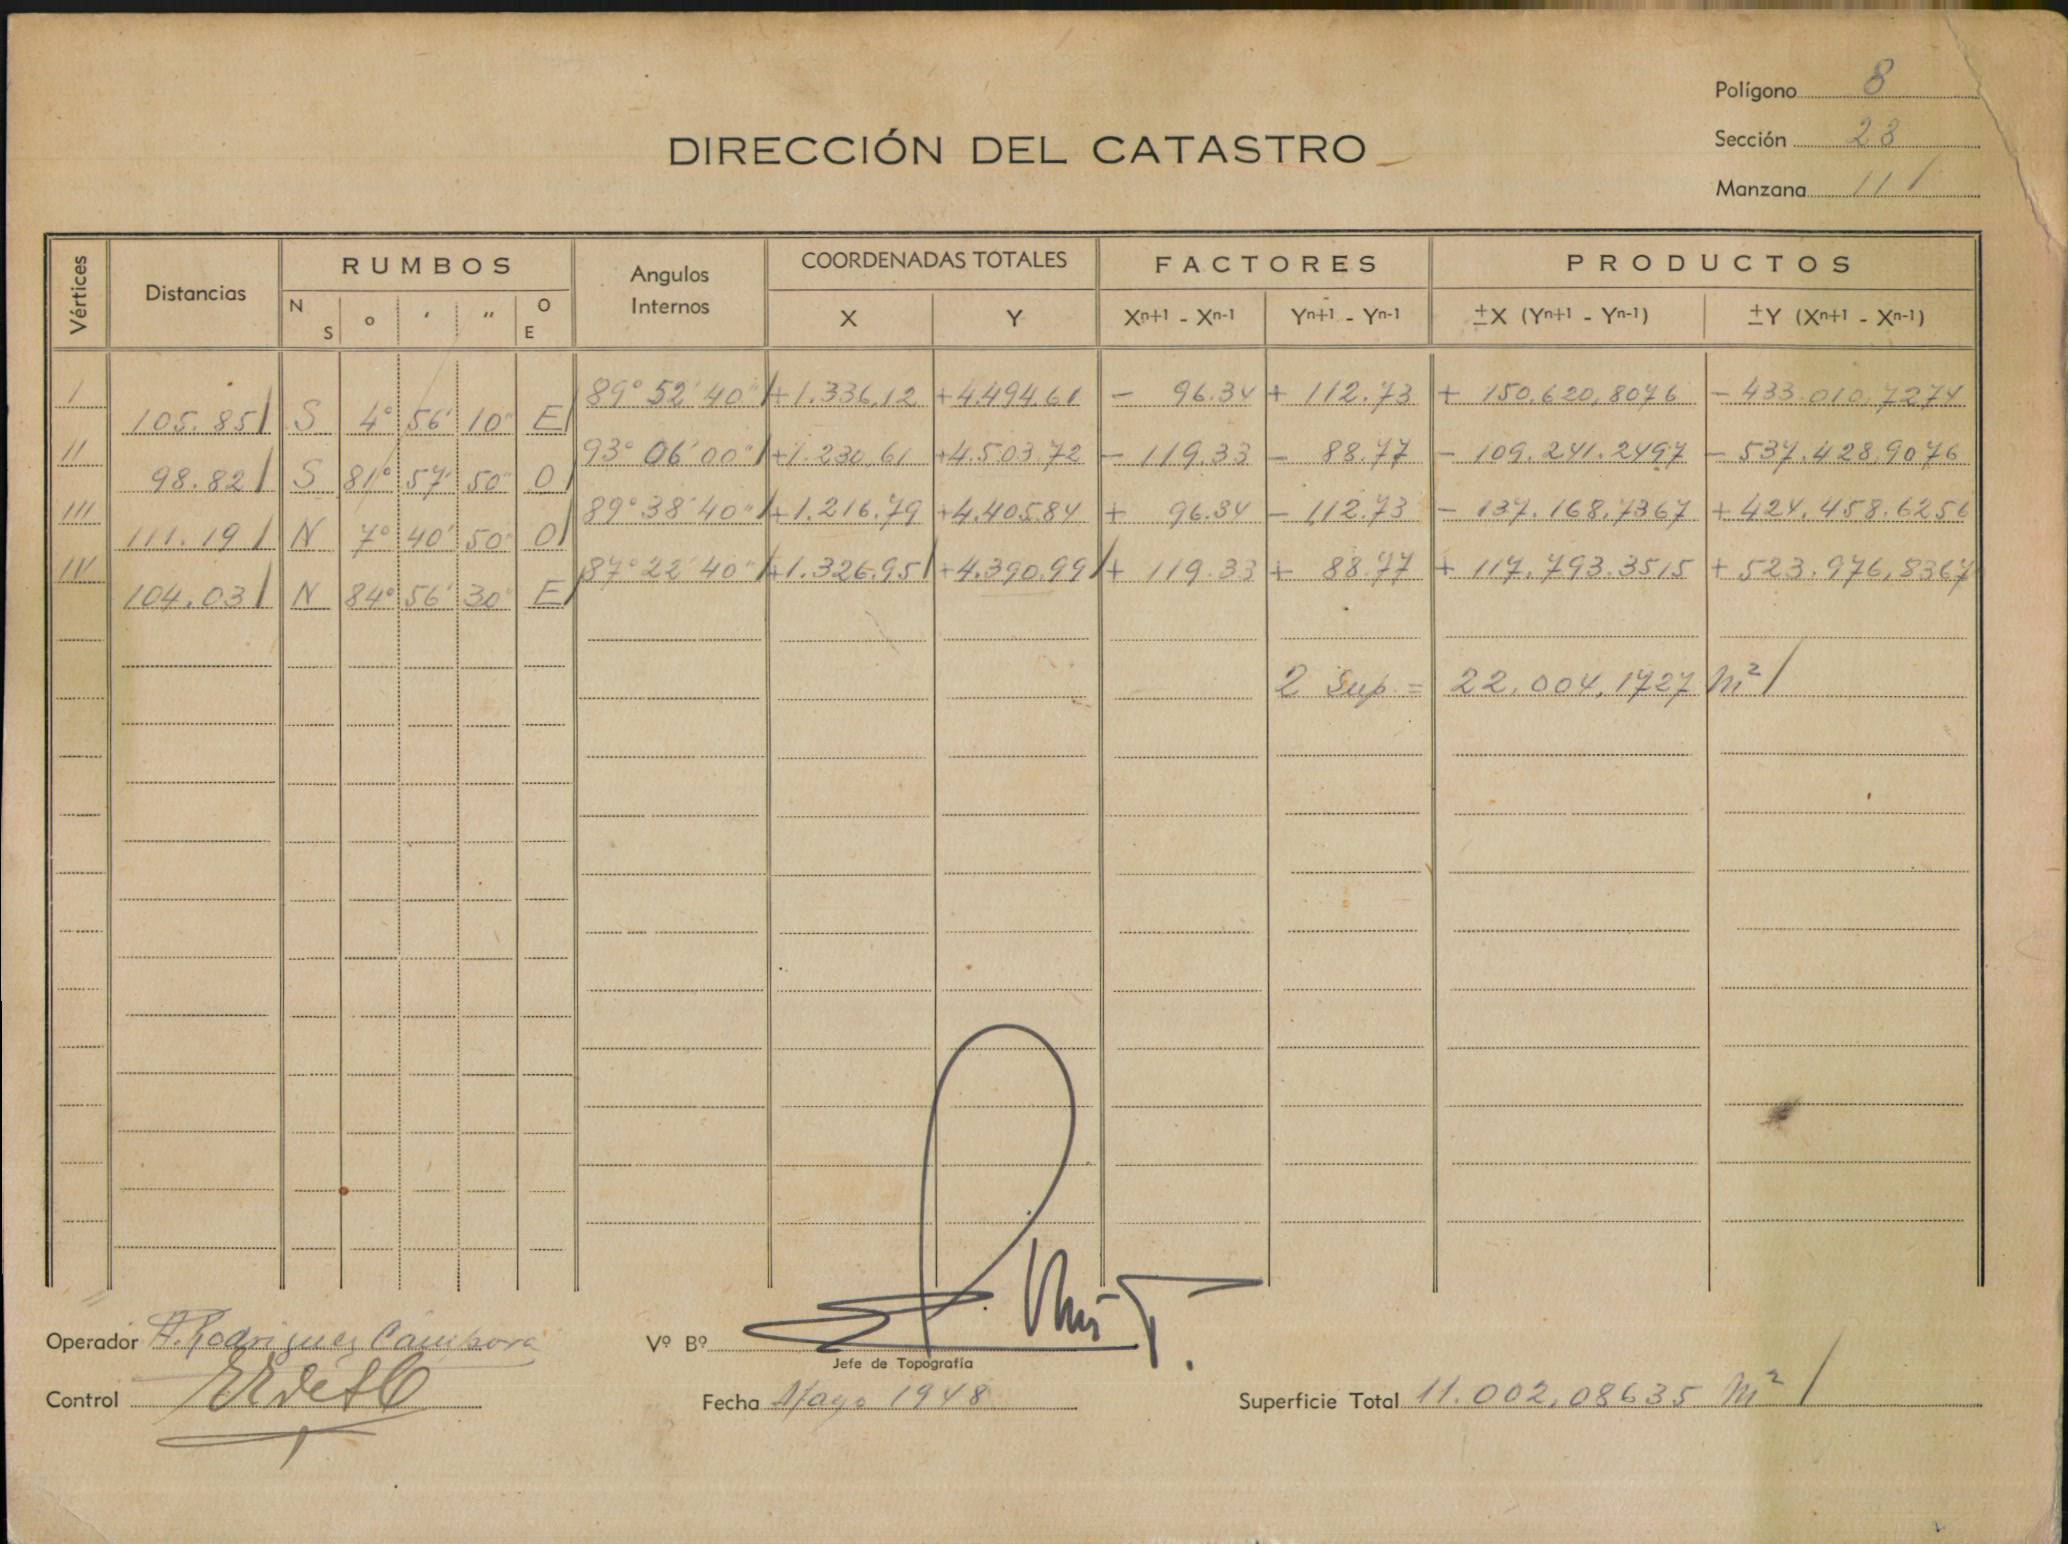 Polígono 8
DIRECCIÓN DEL CATASTRO
Sección 23
Manzana 111
Vértices Distancias RUMBOS Angulos Internos COORDENADAS TOTALES FACTORES PRODUCTOS
N S o ʹ ʺ O E X Y Xn+1 - Xn-1 Yn+1 - Yn-1 ±X (Yn+1 - Yn-1) ±Y (Xn+1 - Xn-1)
I 89° 52' 40" +1.336.12 +4.494.61 - 96.34 + 112.73 + 150.620,8076 - 433.010,7274
105.85 S 4° 56' 10" E
II 93° 06' 00" +1.230,61 +4.503.72 - 119.33 - 88.77 - 109.241.2497 - 537.428,9076
98.82 S 81° 57' 50" O
III 89° 38' 40" +1.216.79 +4.405.84 + 96.34 - 112.73 - 137.168,7367 + 424.458.6256
111.19 N 7° 40' 50" O
IV 87° 22' 40" +1.326.95 +4.390.99 + 119.33 + 88.77 + 117.793.3515 + 523.976,8367
104.03 N 84° 56' 30" E
2 Sup. = 22.004,1727 m²
Operador A. Rodriguez Cámpora Vº Bº
Jefe de Topografía
Control Fecha Mayo 1948 Superficie Total 11.002,08635 m²